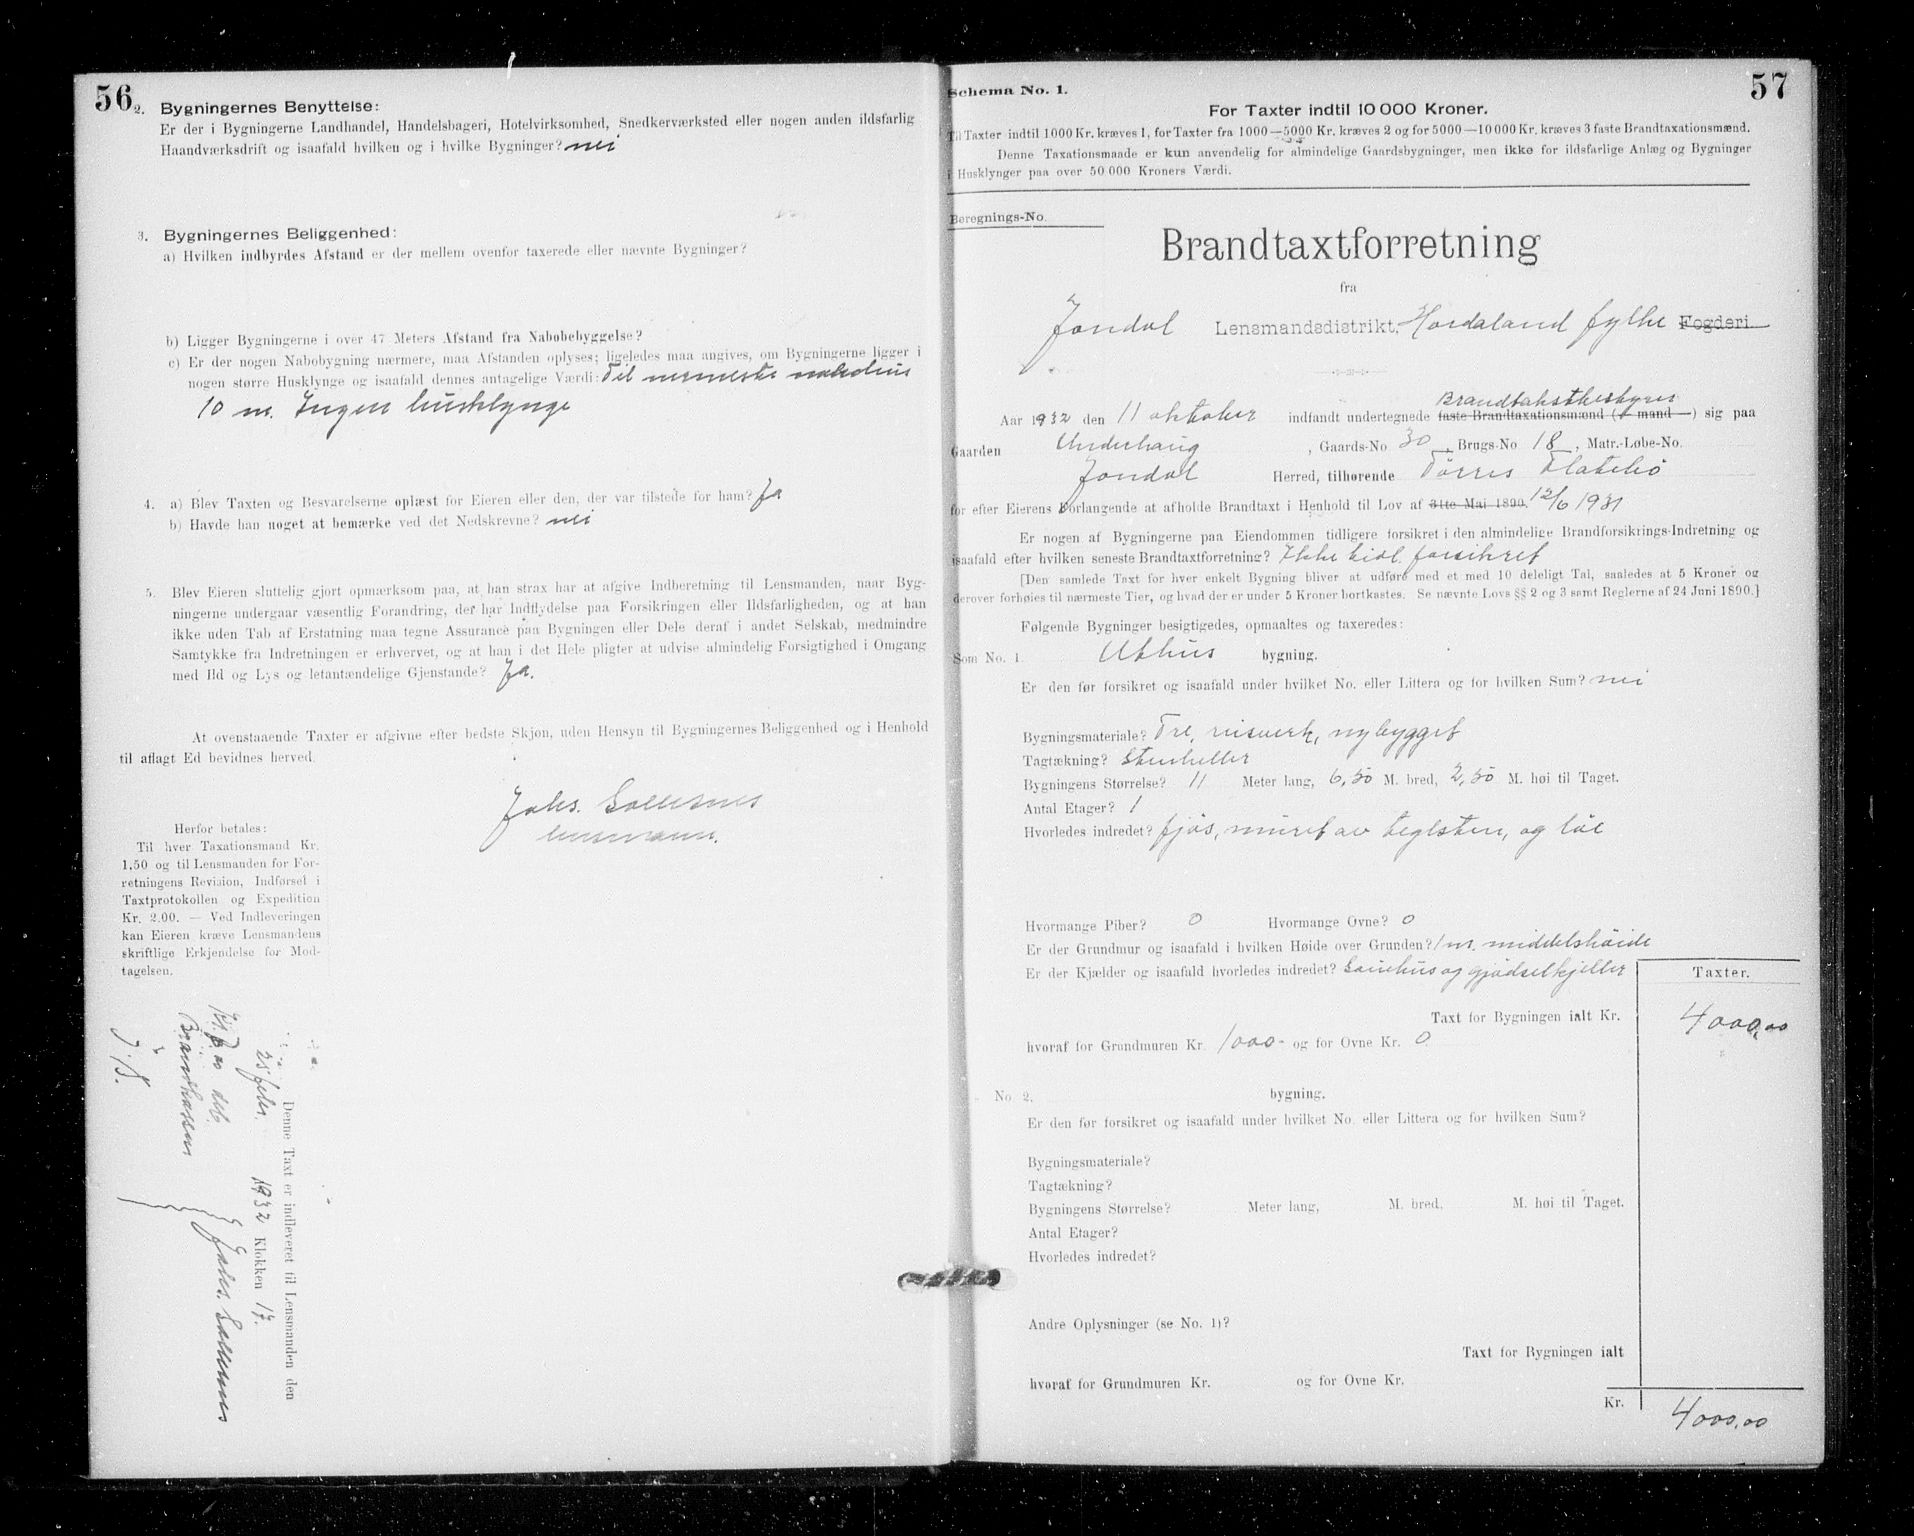 56
2. Bygningernes Benyttelse:
Er der i Bygningerne Landhandel, Handelsbageri, Hotelvirksomhed, Snedkerværksted eller nogen anden ildsfarlig
Haandværksdrift og isaafald hvilken og i hvilke Bygninger? nei
3. Bygningernes Beliggenhed:
a) Hvilken indbyrdes Afstand er der mellem ovenfor taxerede eller nævnte Bygninger?
b) Ligger Bygningerne i over 47 Meters Afstand fra Nabobebyggelse?
c) Er der nogen Nabobygning nærmere, maa Afstanden oplyses; ligeledes maa angives, om Bygningerne ligger i
nogen større Husklynge og isaafald dennes antagelige Værdi: Til nærmeste nabohus
10 m. Ingen husklynge
4. a) Blev Taxten og Besvarelserne oplæst for Eieren eller den, der var tilstede for ham? Ja
b) Havde han noget at bemærke ved det Nedskrevne? nei
5. Blev Eieren sluttelig gjort opmærksom paa, at han strax har at afgive Indberetning til Lensmanden, naar Byg-
ningerne undergaar væsentlig Forandring, der har Indflydelse paa Forsikringen eller Ildsfarligheden, og at han
ikke uden Tab af Erstatning maa tegne Assurance paa Bygningen eller Dele deraf i andet Selskab, medmindre
Samtykke fra Indretningen er erhvervet, og at han i det Hele pligter at udvise almindelig Forsigtighed i Omgang
med Ild og Lys og letantændelige Gjenstande? Ja.
At ovenstaaende Taxter er afgivne efter bedste Skjøn, uden Hensyn til Bygningernes Beliggenhed og i Henhold
til aflagt Ed bevidnes herved.
Johs.
lensmann.
Herfor betales:
Til hver Taxationsmand Kr.
1.50 og til Lensmanden for For-
retningens Revision, Indførsel i
Taxtprotokollen og Expedition
Kr. 2.00. — Ved Indleveringen
kan Eieren kræve Lensmandens
skriftlige Erkjendelse for Mod-
tagelsen.
Denne Taxt er indleveret til Lensmanden den
25 febr. 1932 Klokken 17.
Johs.
57
Schema No. 1.
For Taxter indtil 10 000 Kroner.
Til Taxter indtil 1000 Kr. kræves 1, for Taxter fra 1000—5000 Kr. kræves 2 og for 5000—10000 Kr. kræves 3 faste Brandtaxationsmænd.
Denne Taxationsmaade er kun anvendelig for almindelige Gaardsbygninger, men ikke for ildsfarlige Anlæg og Bygninger
i Husklynger paa over 50 000 Kroners Værdi.
Beregnings-No.
Brandtaxtforretning
fra
Jondal Lensmandsdistrikt, Hordaland fylke Fogderi
Brandtakstbestyrer
Aar 1932 den 11 oktober indfandt undertegnede faste Brandtaxationsmænd ( mand ) sig paa
Gaarden Underhaug, Gaards-No 30, Brugs-No 18, Matr.-Løbe-No.
Jondal Herred, tilhørende Tørres Flatebø
for efter Eierens Forlangende at afholde Brandtaxt i Henhold til Lov af 31te Mai 1890. 12/6 1931
Er nogen af Bygningerne paa Eiendommen tidligere forsikret i den almindelige Brandforsikrings-Indretning og
isaafald efter hvilken seneste Brandtaxtforretning? Ikke tidl. forsikret
[Den samlede Taxt for hver enkelt Bygning bliver at udføre med et med 10 deleligt Tal, saaledes at 5 Kroner og
derover forhøies til nærmeste Tier, og hvad der er under 5 Kroner bortkastes. Se nævnte Lovs §§ 2 og 3 samt Reglerne af 24 Juni 1890.]
Følgende Bygninger besigtigedes, opmaaltes og taxeredes:
Som No. 1. Uthus bygning.
Er den før forsikret og isaafald under hvilket No. eller Littera og for hvilken Sum? nei
Bygningsmateriale? Tre, reisverk, nybygget
Tagtækning? Stenheller
Bygningens Størrelse? 11 Meter lang, 6,50 M. bred, 2,50 M. høi til Taget.
Antal Etager? 1
Hvorledes indredet? fjøs, muret av teglsten, og løe
Hvormange Piber? 0 Hvormange Ovne? 0
Er der Grundmur og isaafald i hvilken Høide over Grunden? 1 m. middelshøide
Er der Kjælder og isaafald hvorledes indredet? Sauehus og gjødselkjeller
Taxter.
Taxt for Bygningen ialt Kr. 4000,00
hvoraf for Grundmuren Kr. 1000- og for Ovne Kr. 0
No. 2. bygning.
Er den før forsikret og isaafald under hvilket No. eller Littera og for hvilken Sum?
Bygningsmateriale?
Tagtækning?
Bygningens Størrelse? Meter lang, M. bred, M. høi til Taget.
Antal Etager?
Hvorledes indredet?
Andre Oplysninger (se No. 1)?
Taxt for Bygningen ialt
hvoraf for Grundmuren Kr. og for Ovne Kr.
Kr. 4000,00